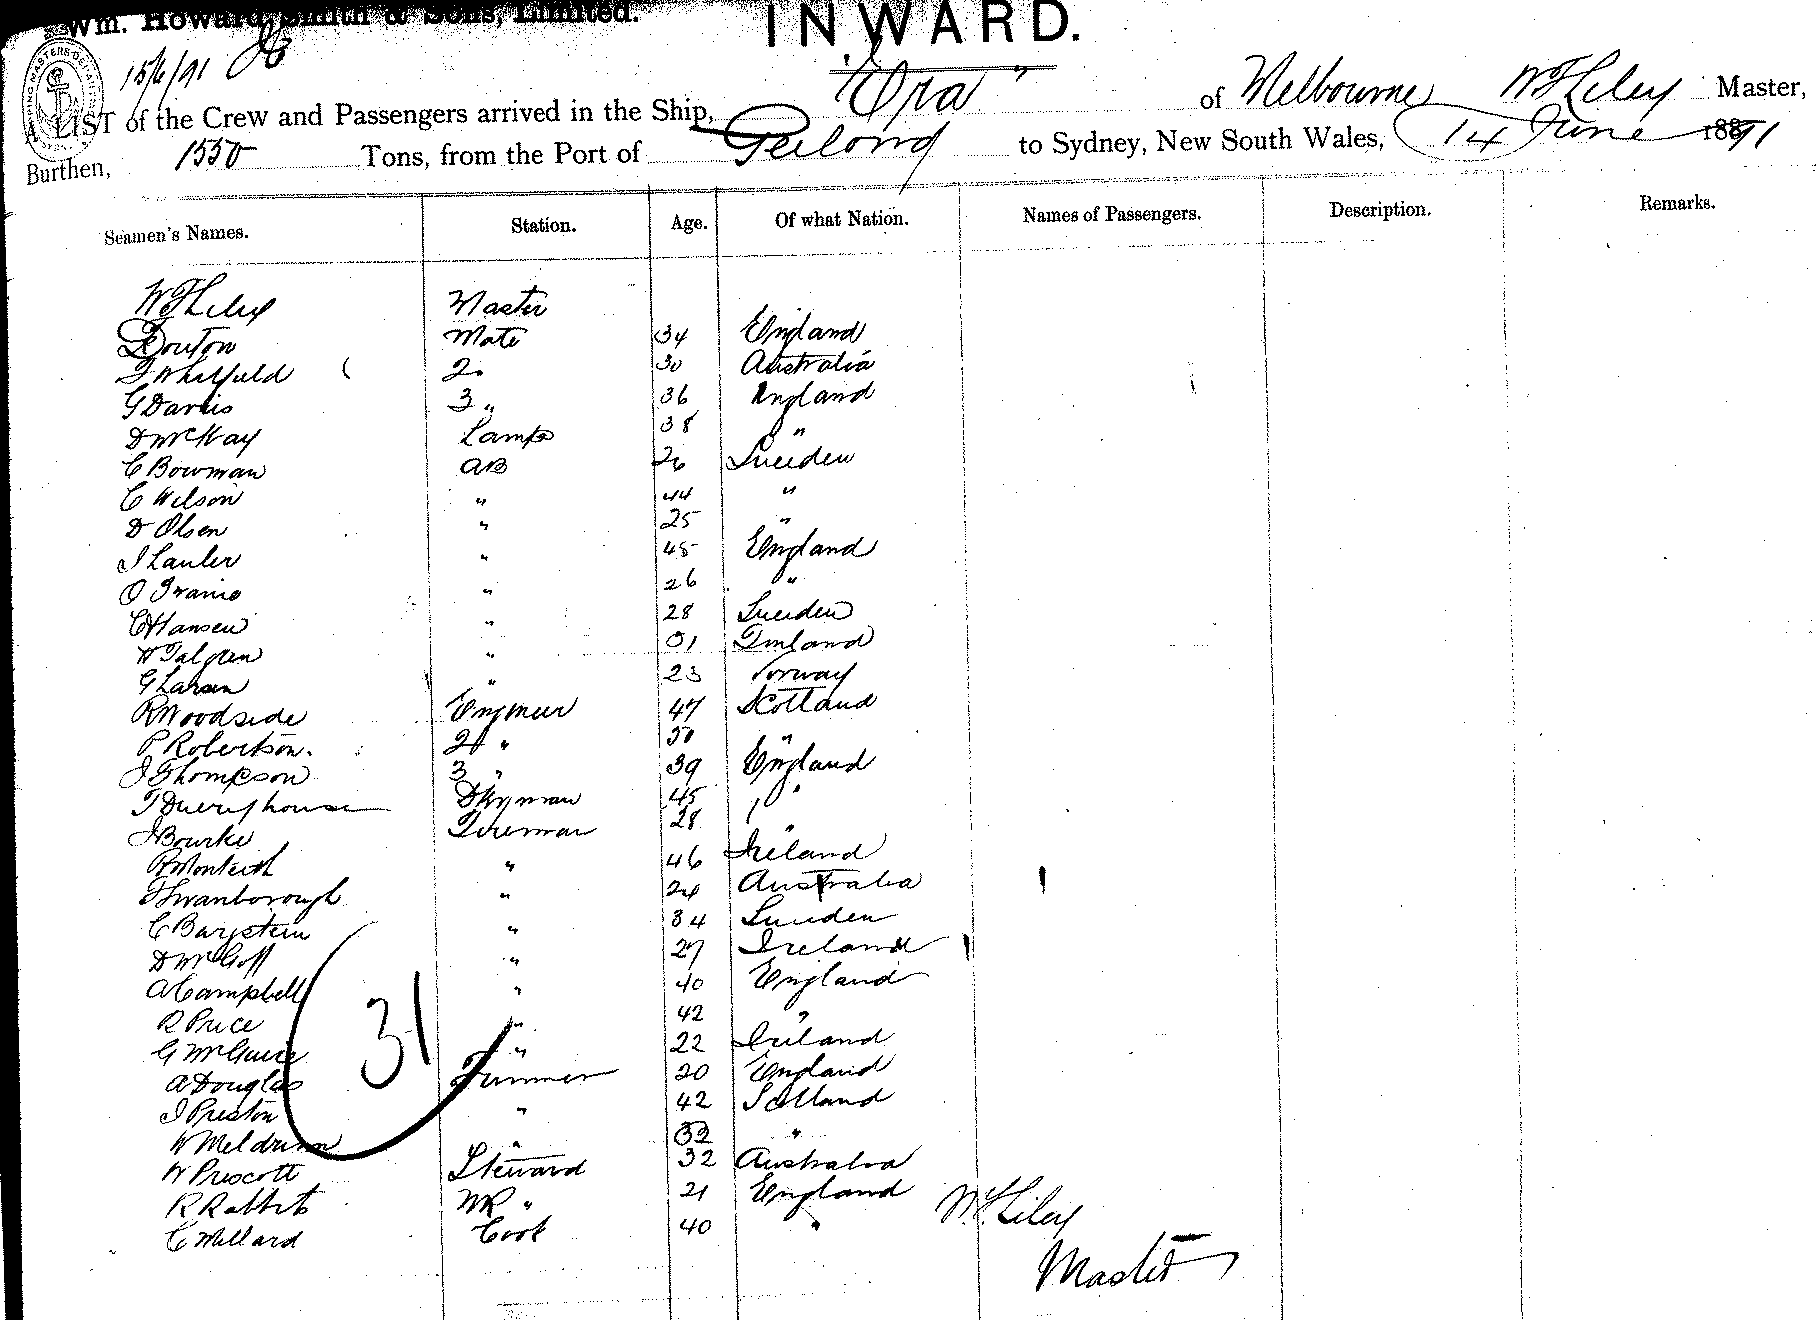 Wm. Howard Smith & Sons, Limited.
INWARD.
15/6/91
A LIST of the Crew and Passengers arrived in the Ship, "Era" of Melbourne W F Liley Master,
Burthen, 1550 Tons, from the Port of Geelong to Sydney, New South Wales, 14 June 1891
Seamen's Names. Station. Age. Of what Nation. Names of Passengers. Description. Remarks.
W F Liley Master
Douton Mate 34 England
T Whitfield 2 " 30 Australia
G Darvis 3 " 36 England
D McKay Lamps 38 "
C Bowman AB 26 Sweden
C Wilson " 44 "
D Olsen " 25 "
J Lawler " 45 England
O Iranio " 26 "
C Hansen " 28 Sweden
W Talgren " 31 Finland
G Larsen " 23 Norway
R Woodside Engineer 47 Scotland
P Robertson. 2 " 30 "
J Thompson 3 " 39 England
T Dueryhouse Dkyman 45 "
J Bourke Fireman 28 "
R Monteith " 46 Ireland
F Swanborough " 24 Australia
C Bargstein " 34 Sweden
D McGoff " 27 Ireland
A Campbell " 40 England
R Price " 42 "
G McGuire " 22 Ireland
A Douglas Trimmer 20 England
J Preston " 42 Scotland
W Meldrum " 32 "
W Prescott Steward 32 Australia
R Rabbits MR " 21 England
C Millard Cook 40 "
31
W F Liley
Master